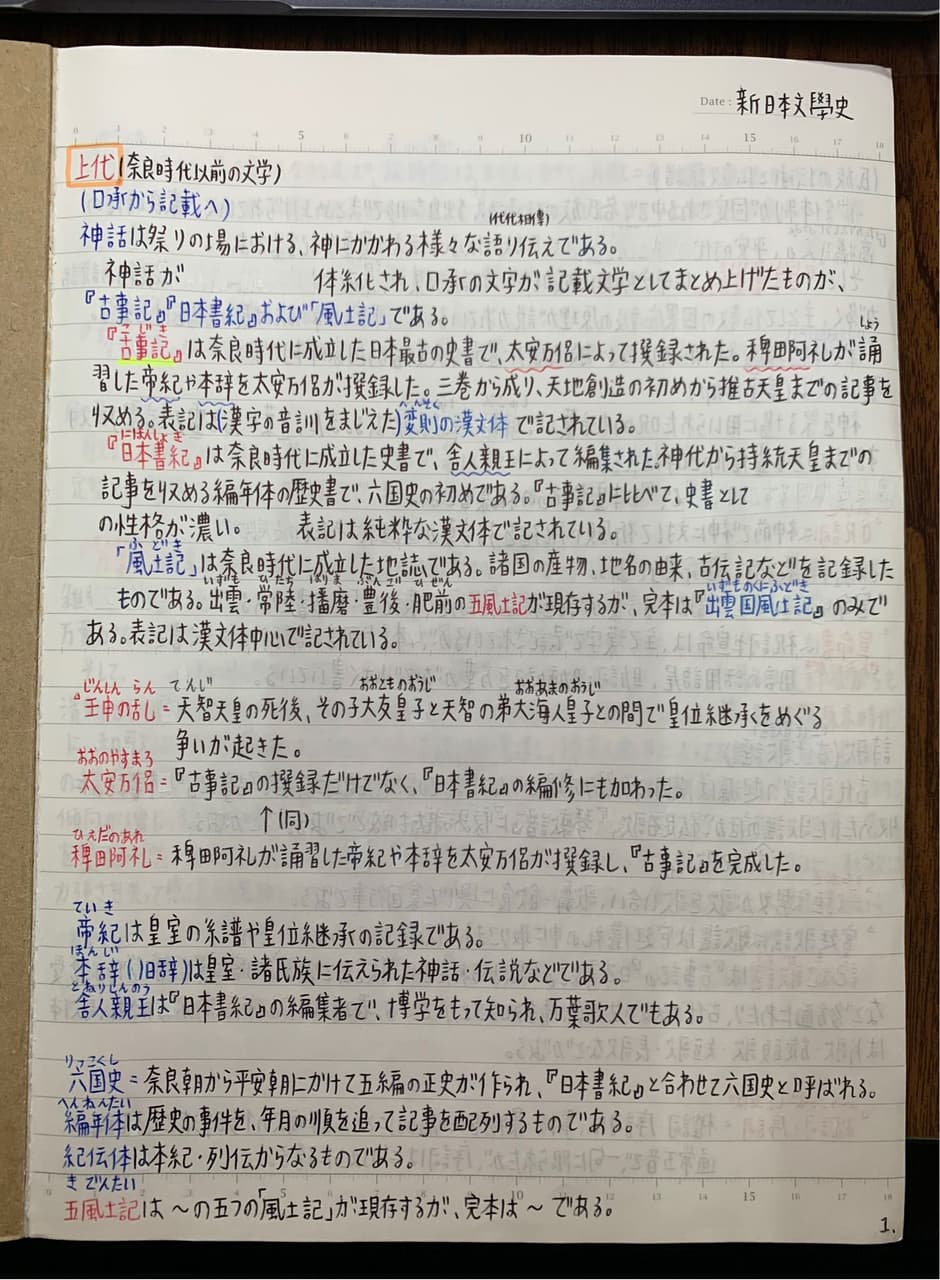 Date : 新日本文學史
0 1 2 3 4 5 6 7 8 9 10 11 12 13 14 15 16 17 18
上代(奈良時代以前の文学)
(口承から記載へ)
(代代相傳)
神話は祭りの場における、神にかかわる様々な語り伝えである。
神話が 体系化され、口承の文字が記載文学としてまとめ上げたものが、
『古事記』『日本書紀』および「風土記」である。
こじき しょう
『古事記』は奈良時代に成立した日本最古の史書で、太安万侶によって撰録された。稗田阿礼が誦
習した帝紀や本辞を太安万侶が撰録した。三巻から成り、天地創造の初めから推古天皇までの記事を
へんそく
収める。表記は(漢字の音訓をまじえた)変則の漢文体で記されている。
にほんしょき
『日本書紀』は奈良時代に成立した史書で、舎人親王によって編集された。神代から持統天皇までの
記事を収める編年体の歴史書で、六国史の初めである。『古事記』に比べて、史書として
の性格が濃い。 表記は純粋な漢文体で記されている。
ふどき
「風土記」は奈良時代に成立した地誌である。諸国の産物、地名の由来、古伝記などを記録した
いずも ひたち はりま ぶんご ひぜん いずものくにふどき
ものである。出雲・常陸・播磨・豊後・肥前の五風土記が現存するが、完本は『出雲国風土記』のみで
ある。表記は漢文体中心で記されている。
じんしん らん てんじ おおとものおうじ おおあまのおうじ
壬申の乱=天智天皇の死後、その子大友皇子と天智の弟大海人皇子との間で皇位継承をめぐる
争いが起きた。
おおのやすまろ
太安万侶=『古事記』の撰録だけでなく、『日本書紀』の編修にも加わった。
↑(同)
ひえだのあれ
稗田阿礼=稗田阿礼が誦習した帝紀や本辞を太安万侶が撰録し、『古事記』を完成した。
ていき
帝紀は皇室の系譜や皇位継承の記録である。
ほんじ
本辞(旧辞)は皇室・諸氏族に伝えられた神話・伝説などである。
とねりしんのう
舎人親王は『日本書紀』の編集者で、博学をもって知られ、万葉歌人でもある。
りっこくし
六国史=奈良朝から平安朝にかけて五編の正史が作られ、『日本書紀』と合わせて六国史と呼ばれる。
へんねんたい
編年体は歴史の事件を、年月の順を追って記事を配列するものである。
紀伝体は本紀・列伝からなるものである。
きでんたい
五風土記は〜の五つの「風土記」が現存するが、完本は〜である。
1.